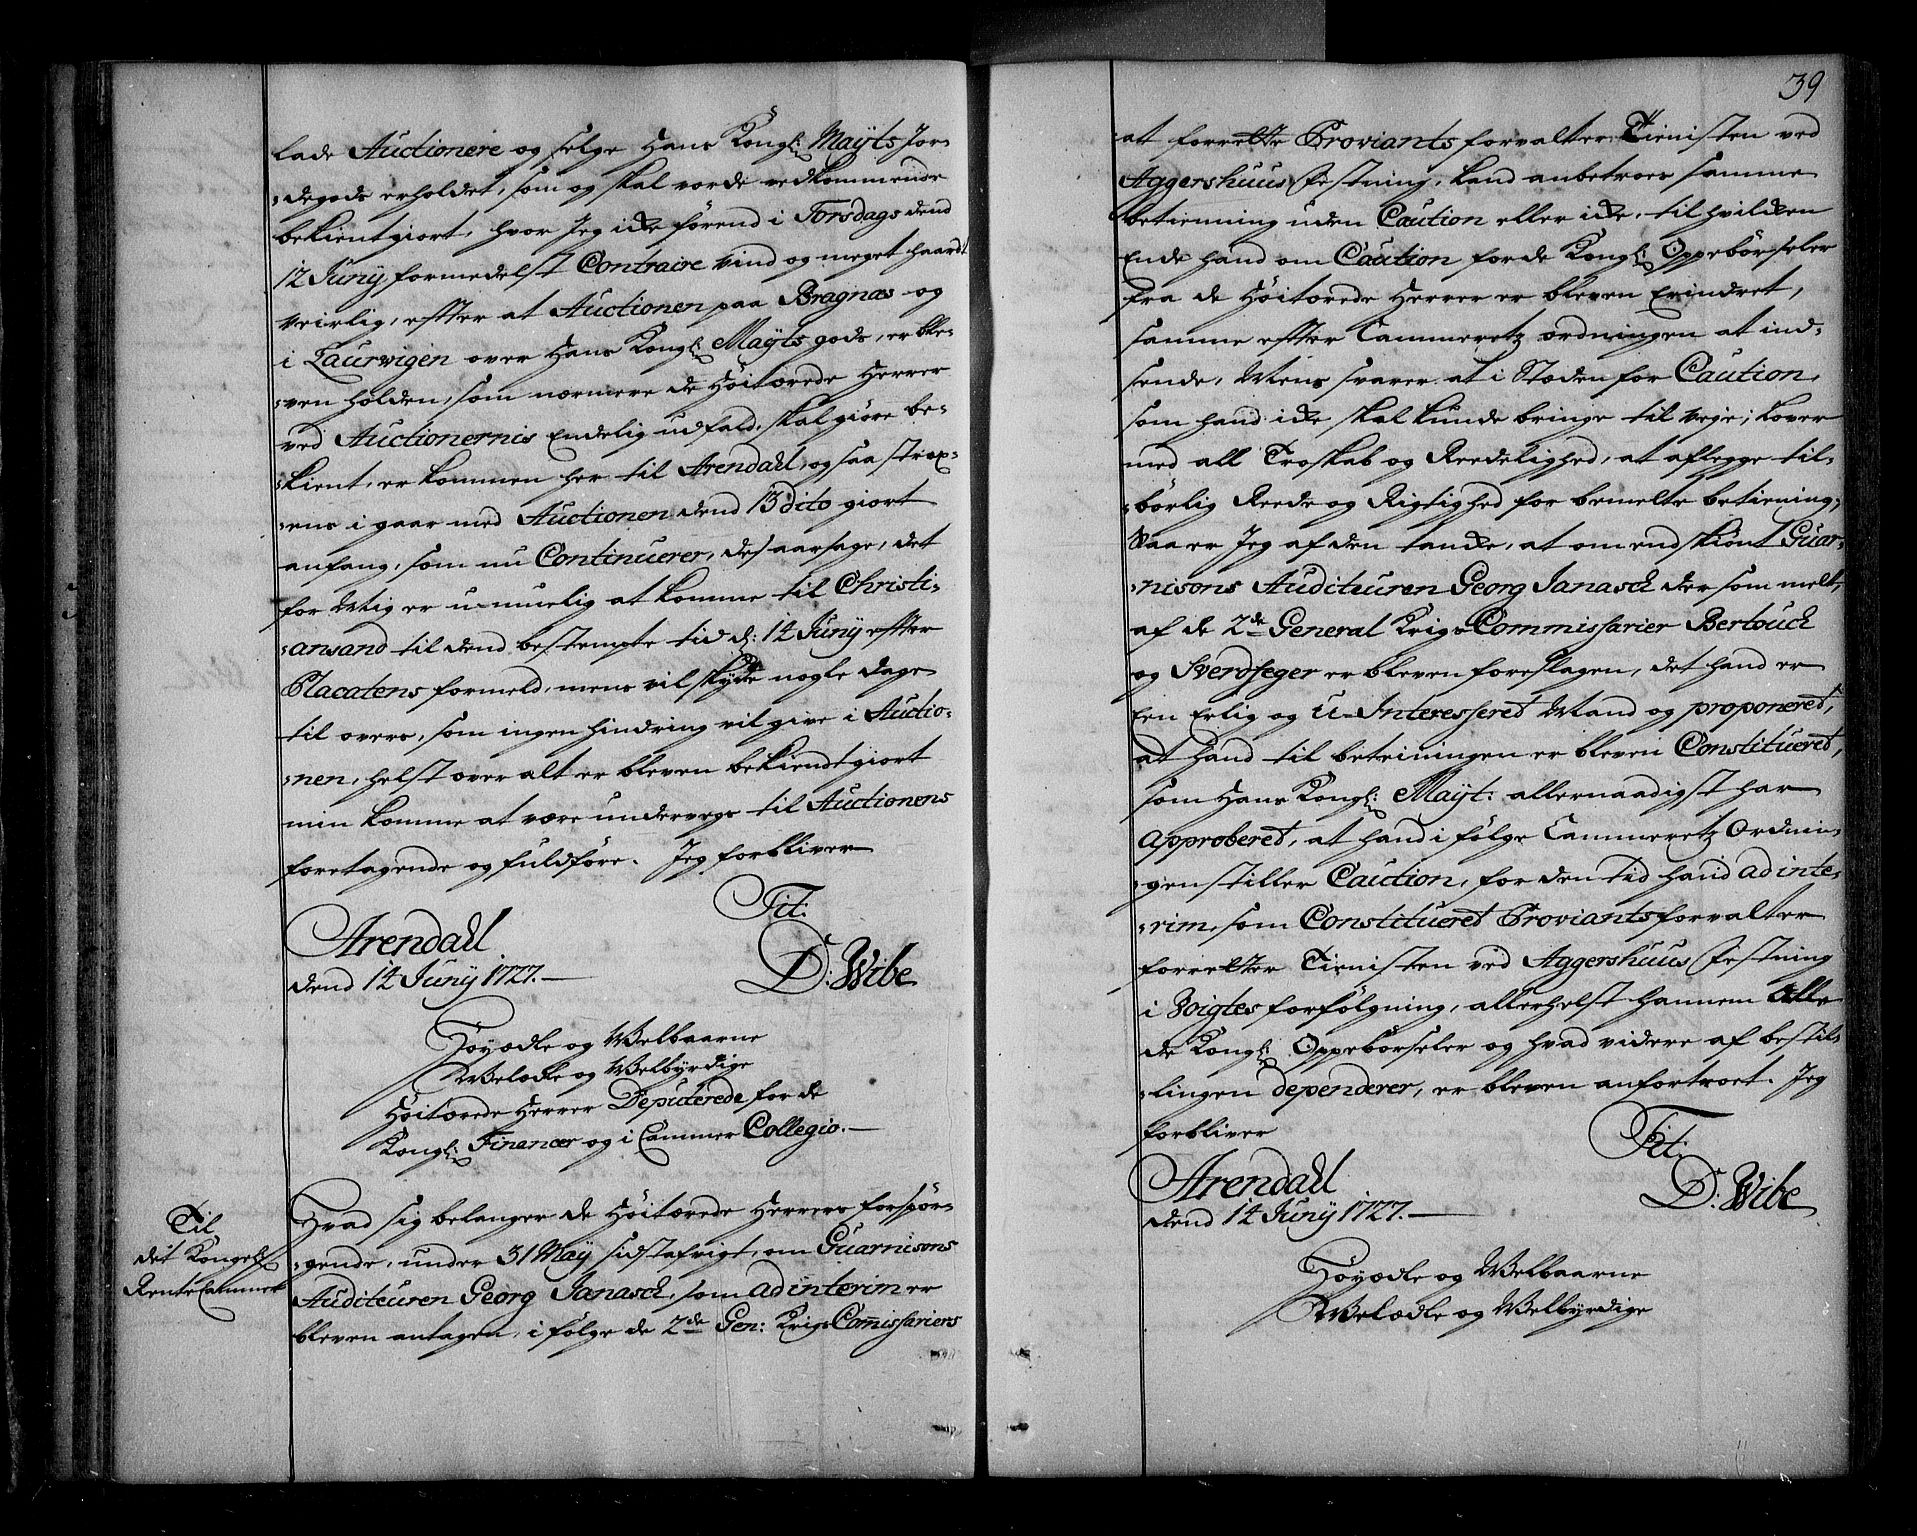 lade Auctionere og selge Hans Kongl: Mayts Jor-
-degods erholdet, som og skal vorde vedkommende
bekientgiort, hvor Jeg icke førend i Torsdags dend
12 Juny formedelst Contraire vind og meget haardt
veirlig, effter at Auctionen paa Bragnæs og
i Laurvigen over Hans Kongl: Mayts gods, er ble-
-ven holden, som nærmere de Høitærede Herrer
ved Auctionernis Endelig udfald, skal giøre be-
-kient, er kommen her til Arendall, og saa strax-
-ens i gaar med Auctionen dend 13 dito giort
anfang, som nu Continuerer, des aarsage, det
for Mig er u-muelig at komme til Christi-
-ansand til dend bestempte tid d: 14 Juny effter
Placatens formeld, mens vil skyde nogle dage
til overs, som ingen hindring vil give i Auctio-
-nen, helst over alt er bleven bekiendtgiort
min komme at være undervegs til Auctionens
foretagende og fuldføre. Jeg forbliver
Tit:
Arendall
dend 14 Juny 1727.
D: Wibe
Høyædle og Welbaarne
Welædle og Welbyrdige
Høitærede Herrer Deputerede for de
Kongl: Financer og i Cammer Collegio.
Til
det Kongel:
Rente Cammer
Hvad sig belanger de Høitærede Herrers forspør-
-gende, under 31 May sidst afvigt, om Guarnisons
Auditeuren Georg Janasch, som ad interim er
bleven antagen, i følge de 2de Gen: Krigs Commissariers
39
at forrette Proviants forvalter Tienisten ved
Aggershuus Festning, kand anbetroes samme
betienning uden Caution eller icke, til hvilcken
Ende hand om Caution for de Kongl: Oppebørseler
fra de Høitærede Herrer er bleven Erindret,
samme effter Cammeretz ordningen at ind-
sende, Mens svarer at i Stæden for Caution,
som hand icke skal kunde bringe til veje, lover
med all Troskab og Reedelighed, at aflegge til-
-børlig Reede og Rigtighed for bemelte betiening,
Saa er Jeg af den tancke, at omendskiønt Guar-
-nisons Auditeuren Georg Janasch der som melt,
af de 2de General Krigs Commissarier Bertouch
og Sverdfeger er bleven foreslagen, det hand er
Een Erlig og U-Interesseret Mand og proponeret,
at hand til betieningen er bleven Constitueret,
som Hans Kongl: Mayt: allernaadigst har
Approberet, at hand i følge Cammeretz Ordnin-
-gen stiller Caution, for den tid hand ad inte-
-rim, som Constitueret Proviants forvalter
forretter Tienisten ved Aggershuus Festning
i Voigtes forfølgning, allerhelst hannem alle
de Kongl: Oppebørseler og hvad videre af bestil-
-lingen dependerer, er bleven anfortroet. Jeg
forbliver
Tit:
Arendall
dend 14 Juny 1727.
D: Wibe
Høyædle og Welbaarne
Welædle og Welbyrdige